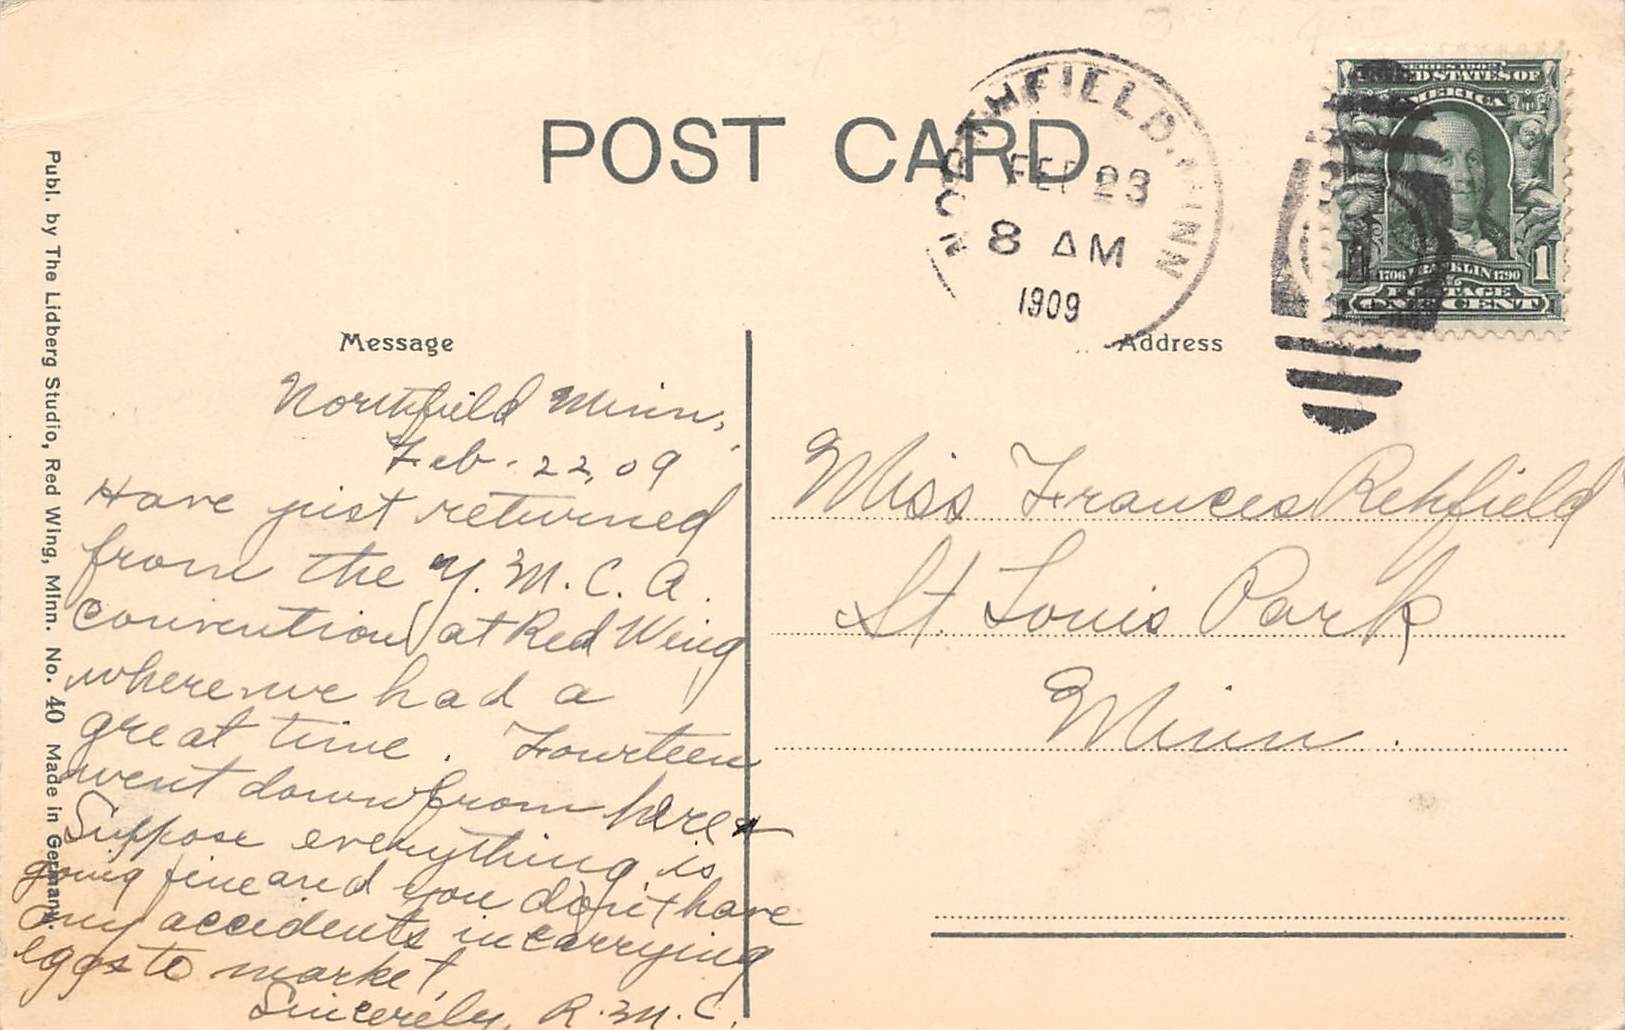 POST CARD
NORTHFIELD, MINN
FEB 23
8 AM
1909
SERIES 1902
UNITED STATES OF
AMERICA
1706 FRANKLIN 1790
1
POSTAGE
ONE CENT
Message
Address
Northfield Minn,
Feb. 22, 09
Have just returned
from the Y. M. C. A.
convention at Red Wing
where we had a
great time. Fourteen
went down from here
Suppose everything is
going fine and you don't have
any accidents in carrying
eggs to market.
Sincerely, R. M. C.
Miss Frances Rehfield
St Louis Park
Minn.
Publ. by The Lidberg Studio, Red Wing, Minn. No. 40 Made in Germany.